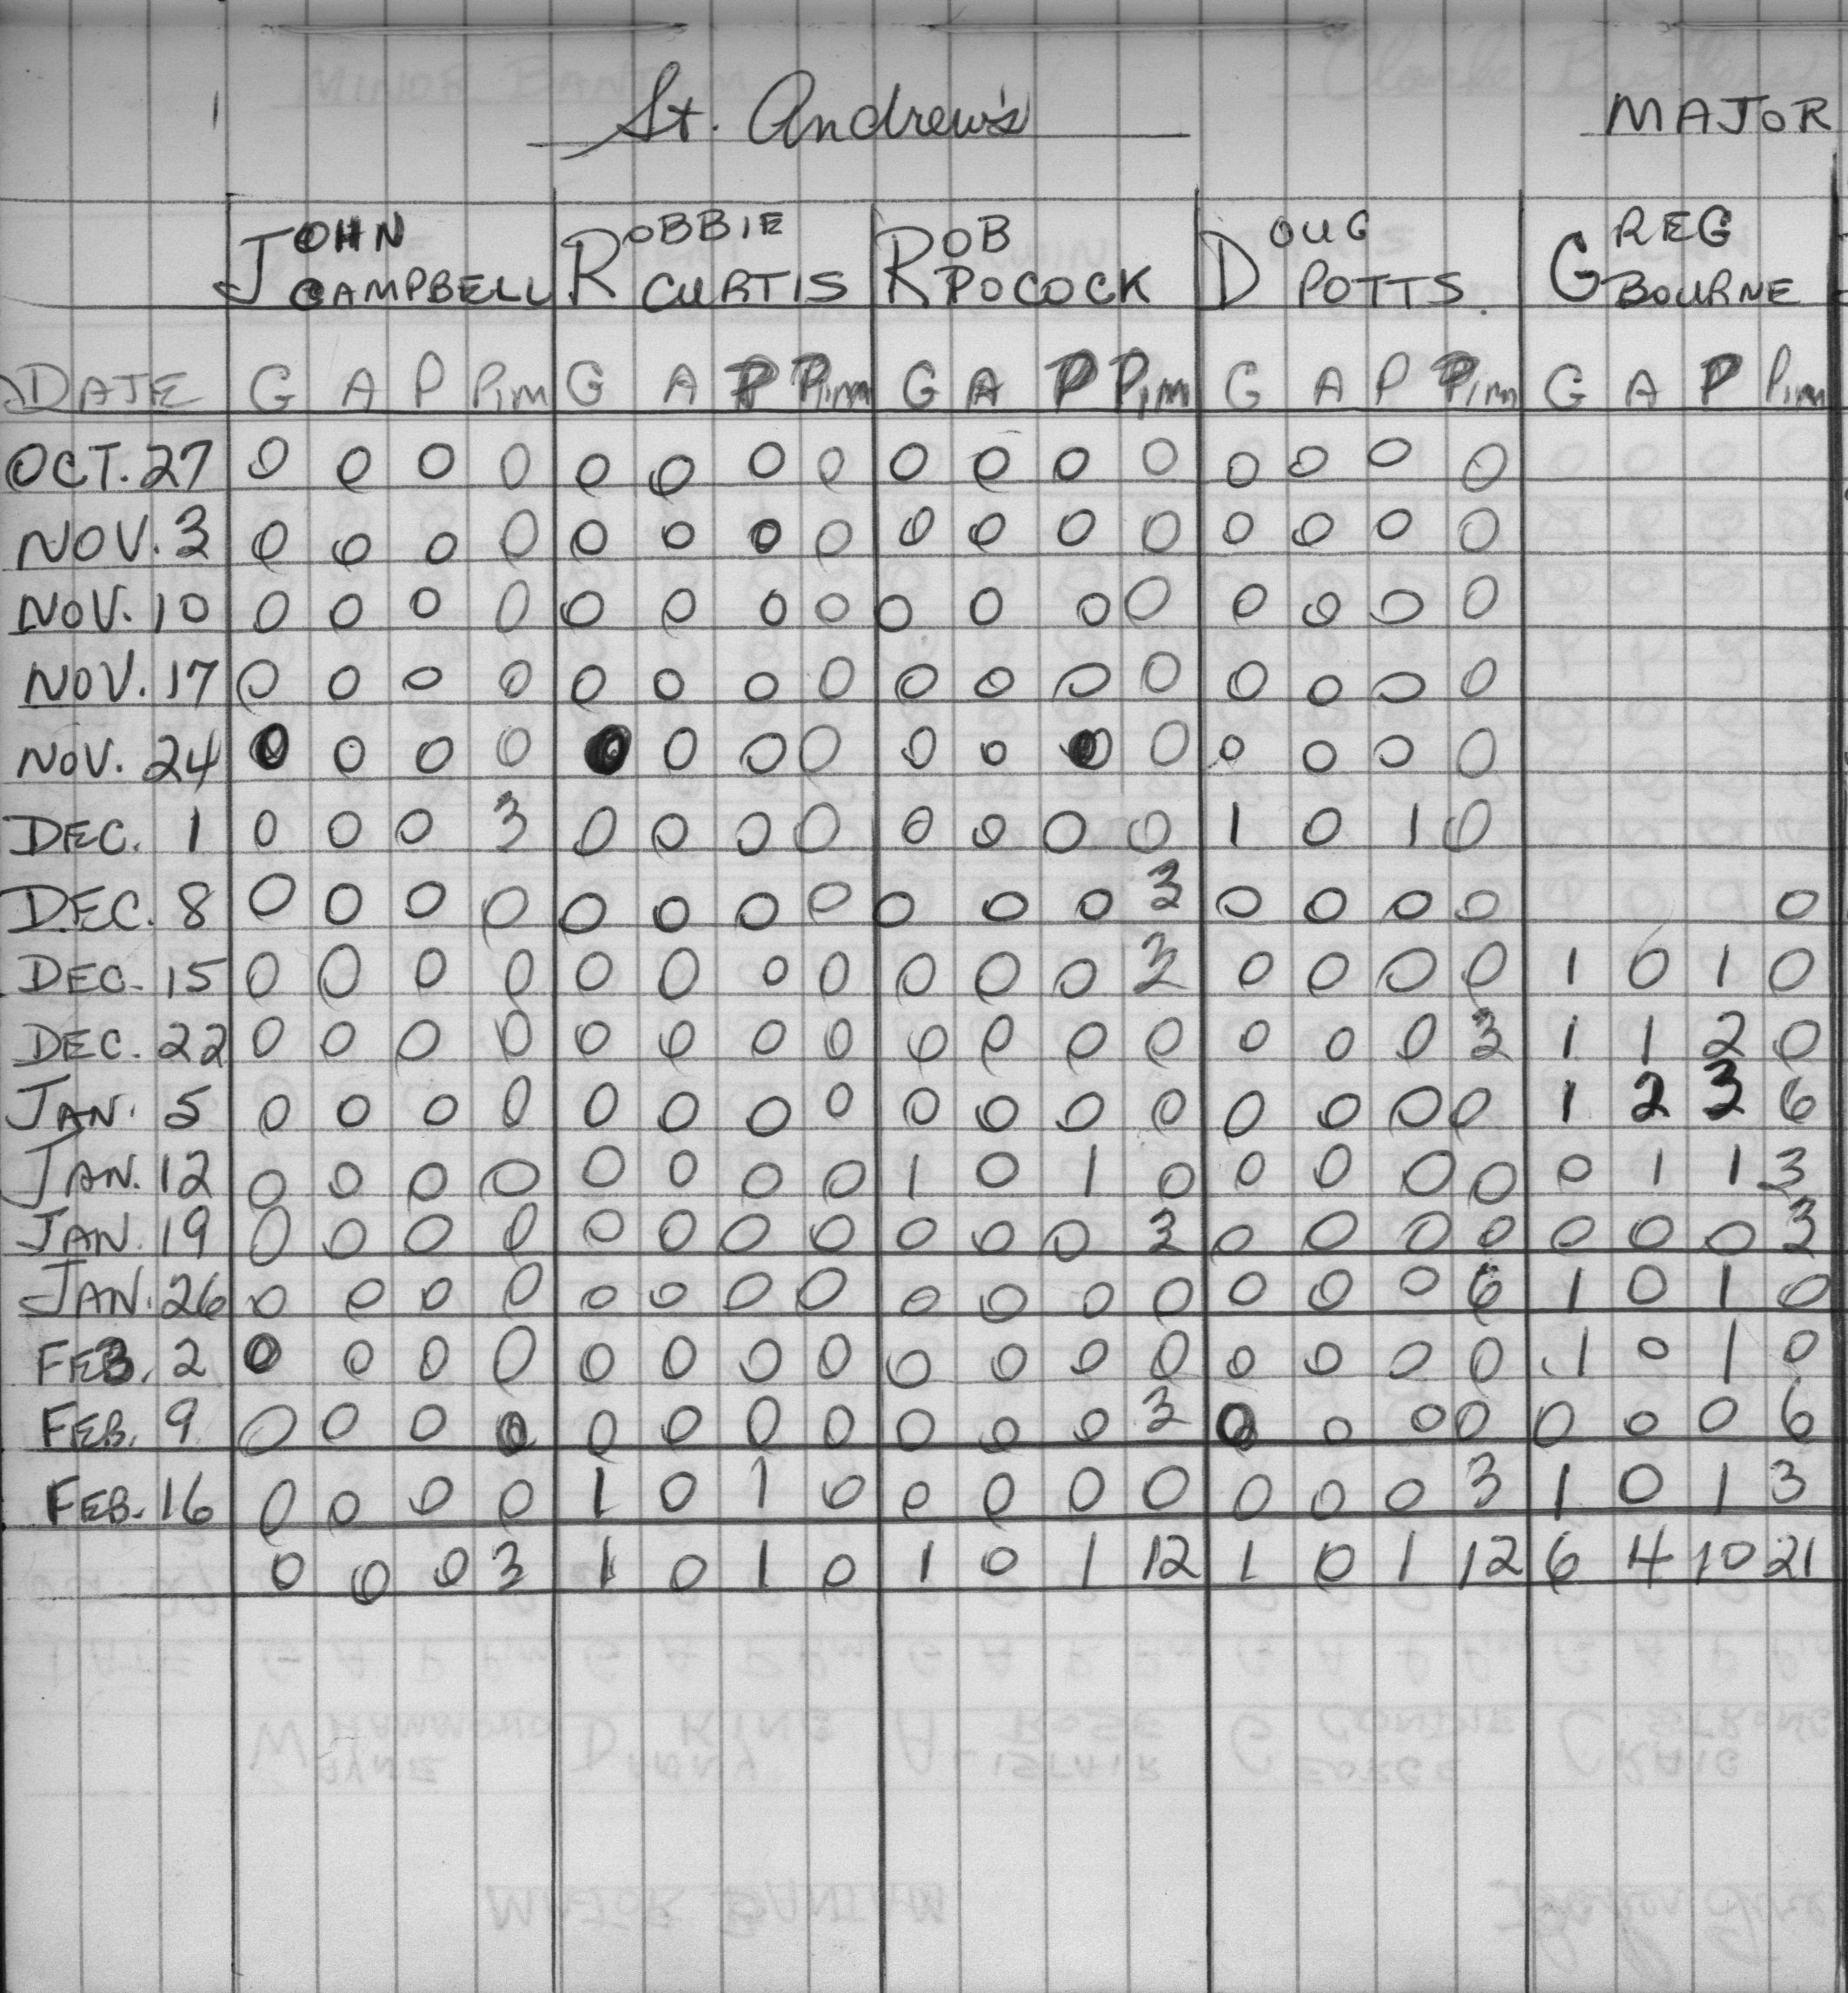 St. Andrew's MAJOR
JOHN CAMPBELL ROBBIE CURTIS ROB POCOCK DOUG POTTS. GREG BOURNE
DATE G A P Pim G A P Pim G A P Pim G A P Pim G A P Pim
OCT. 27 0 0 0 0 0 0 0 0 0 0 0 0 0 0 0 0
NOV. 3 0 0 0 0 0 0 0 0 0 0 0 0 0 0 0 0
NOV. 10 0 0 0 0 0 0 0 0 0 0 0 0 0 0 0 0
NOV. 17 0 0 0 0 0 0 0 0 0 0 0 0 0 0 0 0
NOV. 24 0 0 0 0 0 0 0 0 0 0 0 0 0 0 0 0
DEC. 1 0 0 0 3 0 0 0 0 0 0 0 0 1 0 1 0
DEC. 8 0 0 0 0 0 0 0 0 0 0 0 3 0 0 0 0 0
DEC. 15 0 0 0 0 0 0 0 0 0 0 0 3 0 0 0 0 1 0 1 0
DEC. 22 0 0 0 0 0 0 0 0 0 0 0 0 0 0 0 3 1 1 2 0
JAN. 5 0 0 0 0 0 0 0 0 0 0 0 0 0 0 0 0 1 2 3 6
JAN. 12 0 0 0 0 0 0 0 0 1 0 1 0 0 0 0 0 0 1 1 3
JAN. 19 0 0 0 0 0 0 0 0 0 0 0 3 0 0 0 0 0 0 0 3
JAN. 26 0 0 0 0 0 0 0 0 0 0 0 0 0 0 0 6 1 0 1 0
FEB. 2 0 0 0 0 0 0 0 0 0 0 0 0 0 0 0 0 1 0 1 0
FEB. 9 0 0 0 0 0 0 0 0 0 0 0 3 0 0 0 0 0 0 0 6
FEB. 16 0 0 0 0 1 0 1 0 0 0 0 0 0 0 0 3 1 0 1 3
0 0 0 3 1 0 1 0 1 0 1 12 1 0 1 12 6 4 10 21